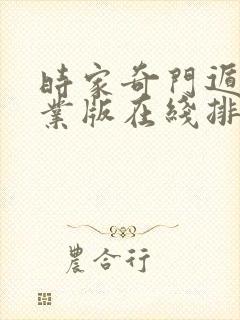 時家奇門遁
業版在綫排
農合行